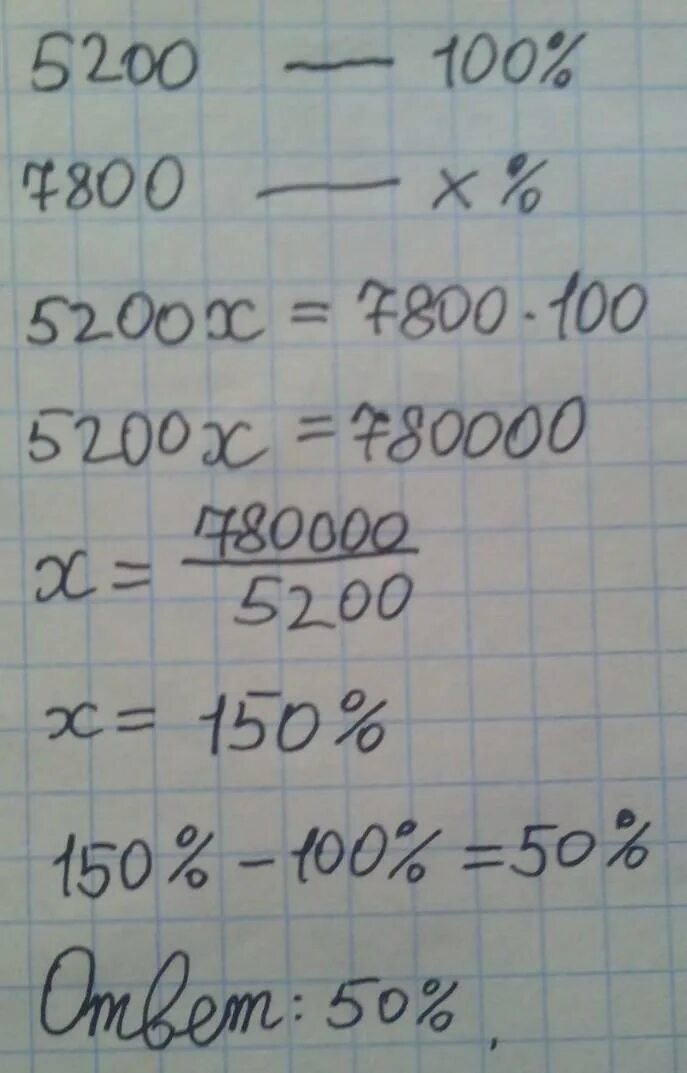 5200 — 100%
7800 — x %
5200x = 7800 · 100
5200x = 780000
x = 780000 / 5200
x = 150%
150% - 100% = 50%
Ответ: 50%.